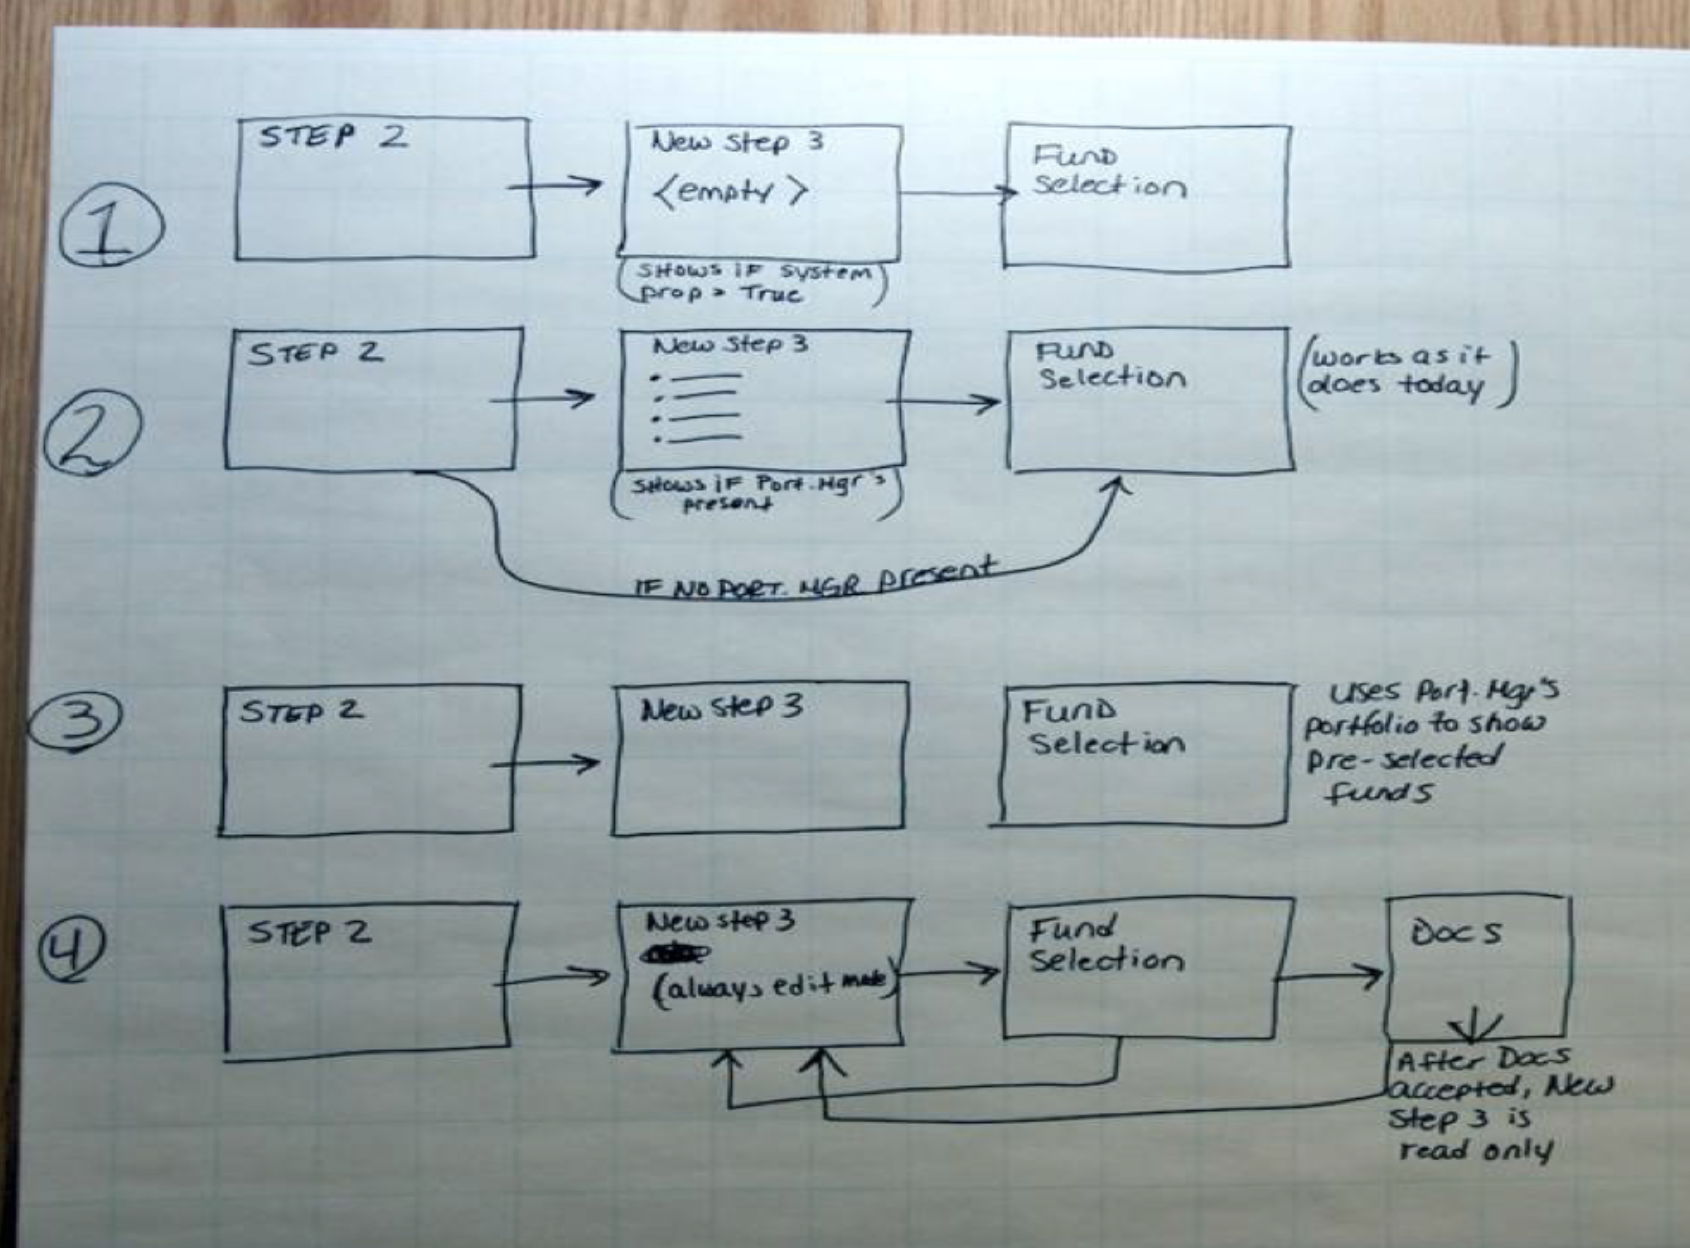 1
STEP 2
New Step 3
<empty>
(SHOWS IF System
prop = True)
Fund
Selection
2
STEP 2
New Step 3
(SHOWS IF Port. Mgr's
present)
Fund
Selection
(works as it
does today)
IF NO PORT. MGR present
3
STEP 2
New Step 3
Fund
Selection
Uses Port. Mgr's
portfolio to show
pre-selected
funds
4
STEP 2
New Step 3
(always edit mode)
Fund
Selection
Docs
After Docs
accepted, New
Step 3 is
read only